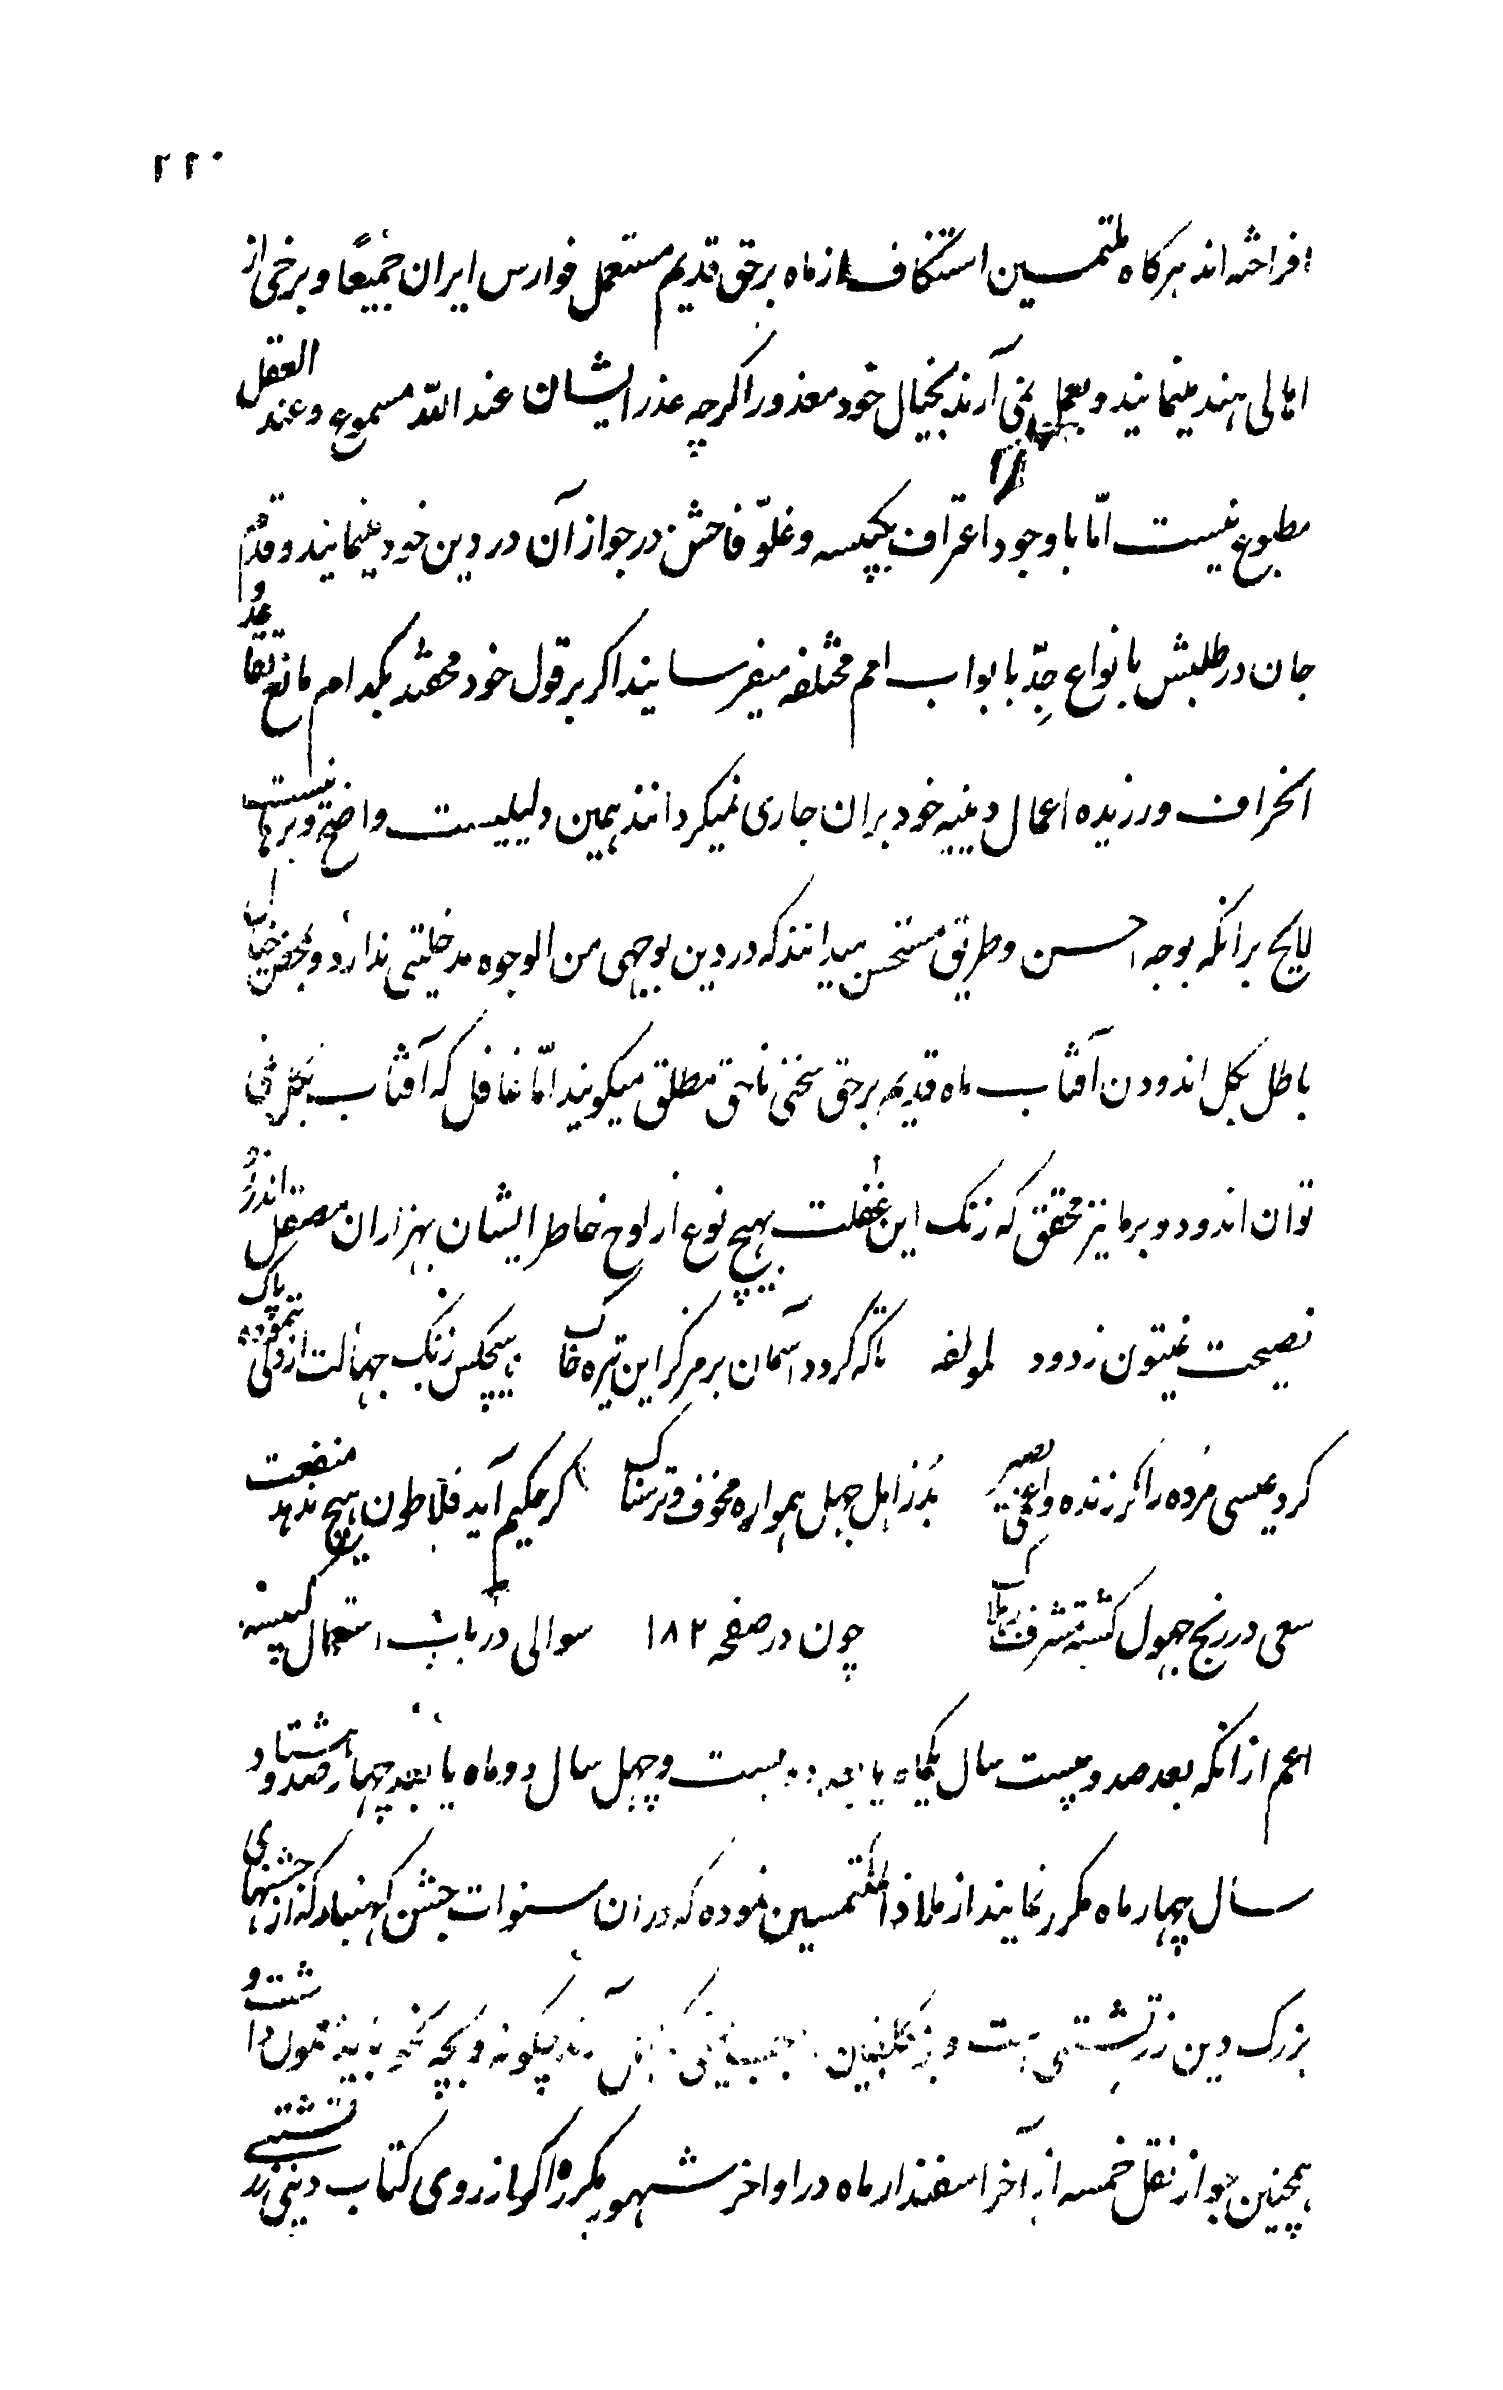 ۲۲۰
افراخته اند هرکاه ملتمسین استنکاف از ماه برحق قدیم مستعمل فوارس ایران جمیعًا و برخی از
اهالی هند مینمایند و بعمل نمی آرند بخیال خود معذور اکرچه عذر ایشان عند اللّه مسموع و عند العقل
مطبوع نیست امّا با وجود اعتراف بکبیسه و غلوّ فاحش در جواز آن در دین خود مینمایند و قدم
جان در طلبش بانواع جِدّ بابواب امم مختلفه میفرسایند اکر بر قول خود محقند بکدام مانع
انحراف ورزیده اعمال دینیه خود بران جاری نمیکردانند همین دلیلیست واضح و برهانیست
لایح برانکه بوجه احسن و طریق مستحسن میدانند که در دین بوجهی من الوجوه مدخلیتی ندارد و بمحض خیال
باطل بکل اندودن آفتاب ماه قدیم برحق سخنی ناحق مطلق میکویند امّا غافل که آفتاب بکل نمی
توان اندود و بر ما نیز محقق که زنک این غفلت بهیچ نوع از لوح خاطر ایشان بهزاران مصقل اندرز و
نصیحت نیتون زدود لمولفه تا که کردد آسمان بر مرکز این تیره خاک هیچکس زنک جهالت از دلی ننموده پاک
کرد عیسی مرده را کر زنده و اعمی بصیر بُد ز اهل جهل همواره مخوف و ترسناک کر حکیم آید فلاطون هیچ ندهد منفعت
سعی در رنج جهول کشته مشرف بر هلاک چون در صفحه ۱۸۲ سوالی در باب استعمال کبیسه
اعم از انکه بعد صد و بیست سال یکماه یا بعد دویست و چهل سال دو ماه یا بعد چهار صد و هشتاد
سال چهار ماه مکرر نمایند از ملاذ الملتمسین نموده که در ان سنوات جشن کهنبار که از جشنهای
بزرک دین زرتشتی است و چکونه و بچه نحو
همچنین جواز نقل خمسه از آخر اسفندار ماه در اواخر شهور مکرره اکر از روی کتاب دینی زرتشتی